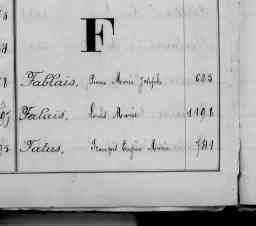 F
Fablais, Pierre Marie Joseph 685
Falais, Louis Marie 1198
Fatus, François Eugène Marie 741